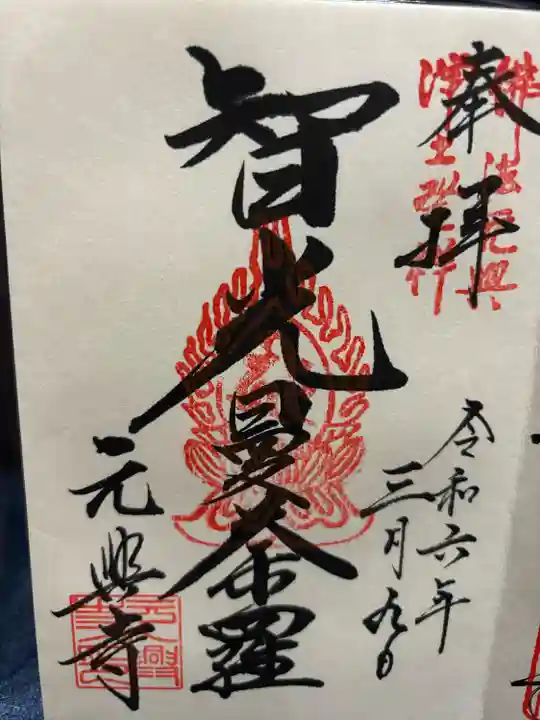 奉拝
佛法元興
令和六年
三月九日
智光曼荼羅
元興寺